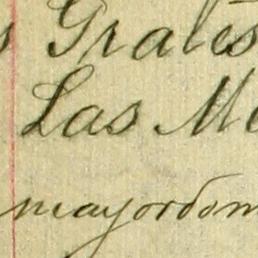 s Grates
Las Me
mayordom